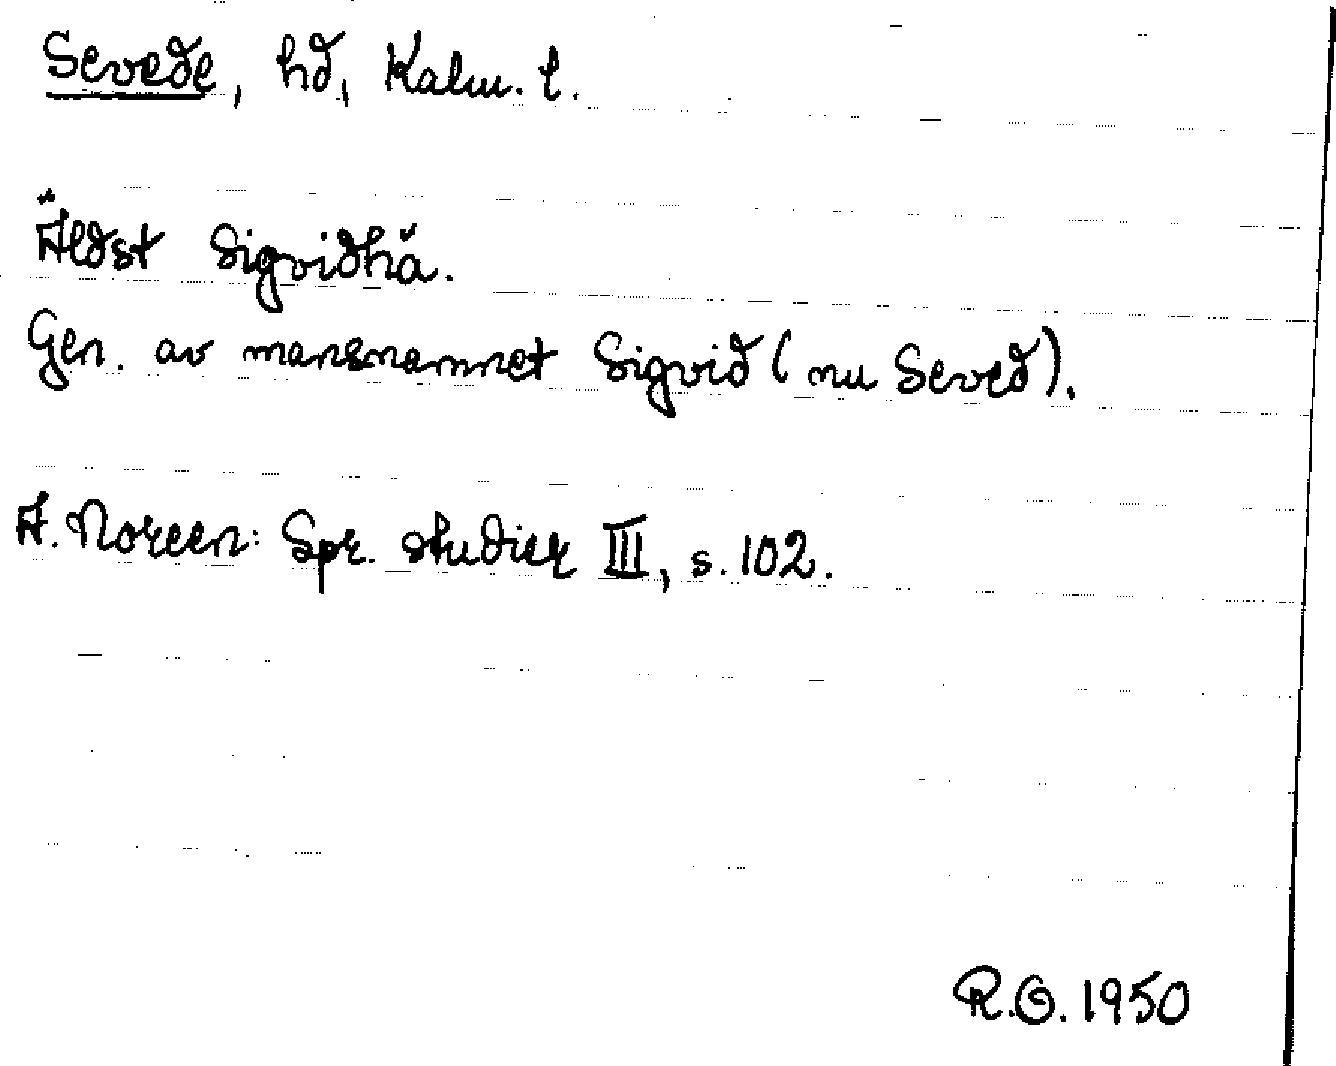 Sevede, hd, Kalm. l.
Äldst Sigvidhä.
Gen. av mansnamnet Sigvid (nu Seved).
A. Noreen: Spr. studier III, s. 102.
R.O. 1950